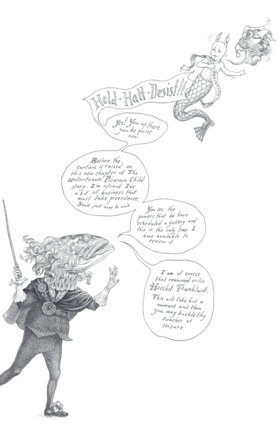 Hold·Halt·Desist!!!
Yes! You up there,
you be quiet
now!
Before the
curtain is raised on
this new chapter of The
Unfortunate Picaroon Child
story. I'm afraid I've
a bit of business that
must take precedence.
You'll just have to wait.
You see, the
powers that be have
scheduled a gallery and
this is the only time I
have available to
review it.
I am of course
that renowned critic
This will take but a
moment and then
you may buckle thy
swashes at
leisure.